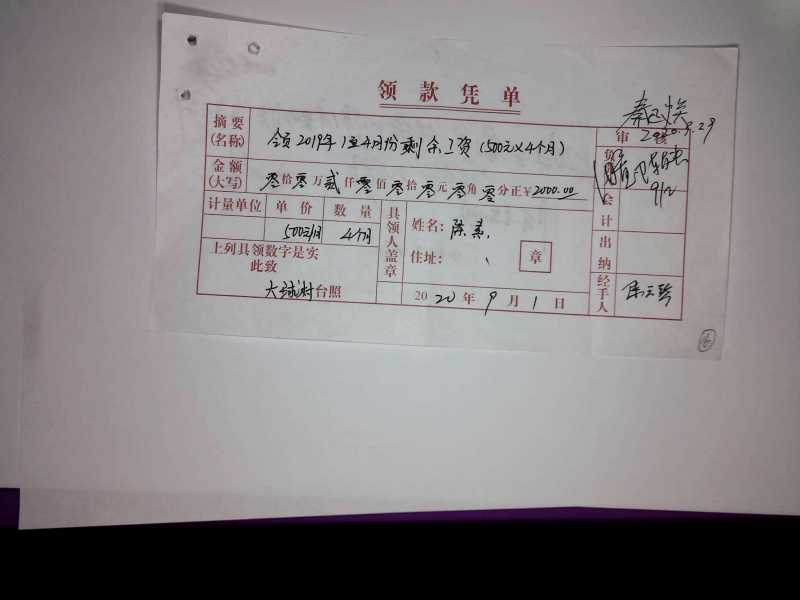 领款凭单
摘要(名称) 领2019年1至4月份剩余工资(500元×4个月)
金额(大写) 零拾零万贰仟零佰零拾零元零角零分正¥2000.00
计量单位 单价 数量
500元/月 4个月
上列具领数字是实
此致
台照
具领人盖章
姓名:陈素
住址:
章
2020年9月1日
审核
2020.9.29
负
9/2
会计
出纳
经手人
6